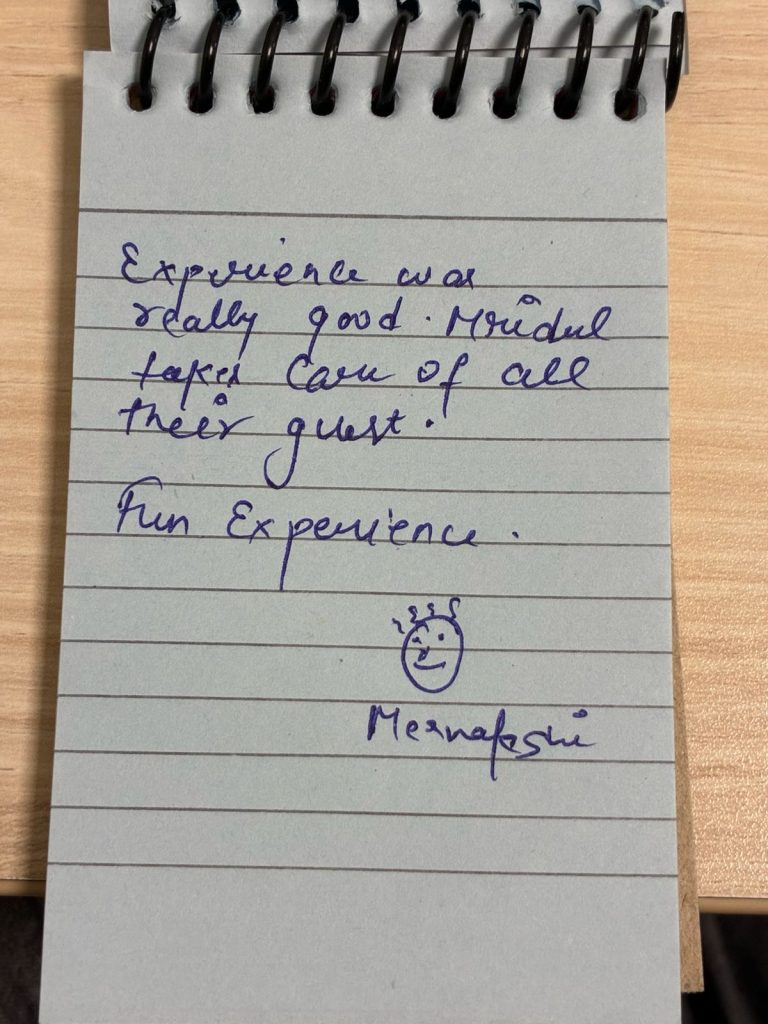 Experience was
really good. Mridul
takes Care of all
their guest.
Fun Experience.